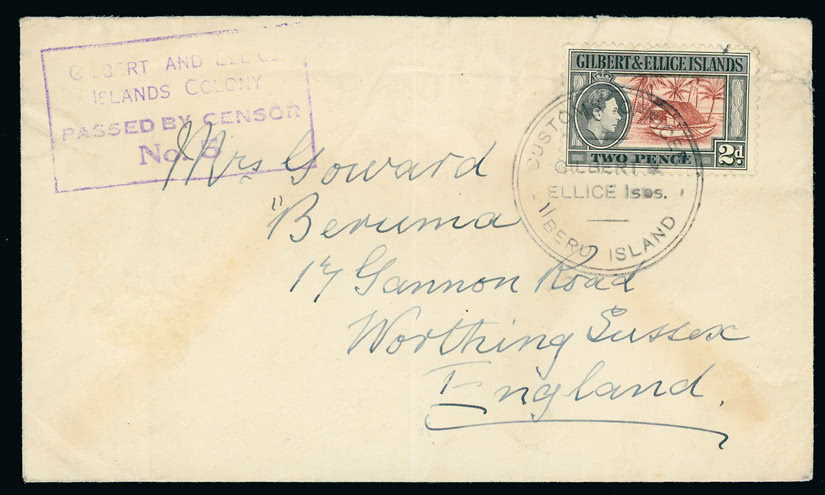 GILBERT AND ELLICE
ISLANDS COLONY
PASSED BY CENSOR
No. 5
GILBERT & ELLICE ISLANDS
TWO PENCE
2d
CUSTOMS OFFICE
GILBERT &
ELLICE ISDS.
BERU ISLAND
Mrs Goward
"Beruma
17 Gannon Road
Worthing Sussex
England.